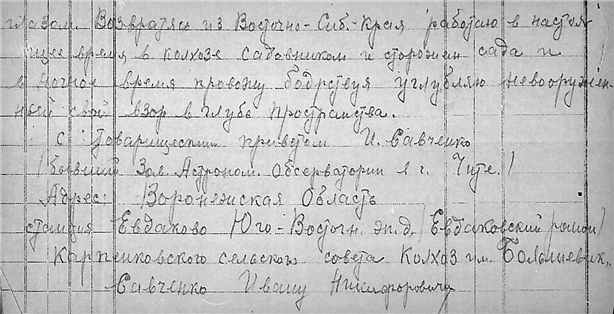 глазом. Возвратясь из Восточно-Сиб. Края работаю в настоя
щее время в колхозе садовником и сторожем сада и
в ночное время провожу бодрствуя углубляю невооружен
ный свой взор в глубь пространства.
С товарищеским приветом И. Савченко
(бывший Зав. Астроном. Обсерватории в г. Чите.)
Адрес: Воронежская Область
станция Евдаково Юго-Восточн. ж.д. (Евдаковский район)
Карпенковского сельского совета Колхоз им. Большевик„
Савченко Ивану Никифоровичу